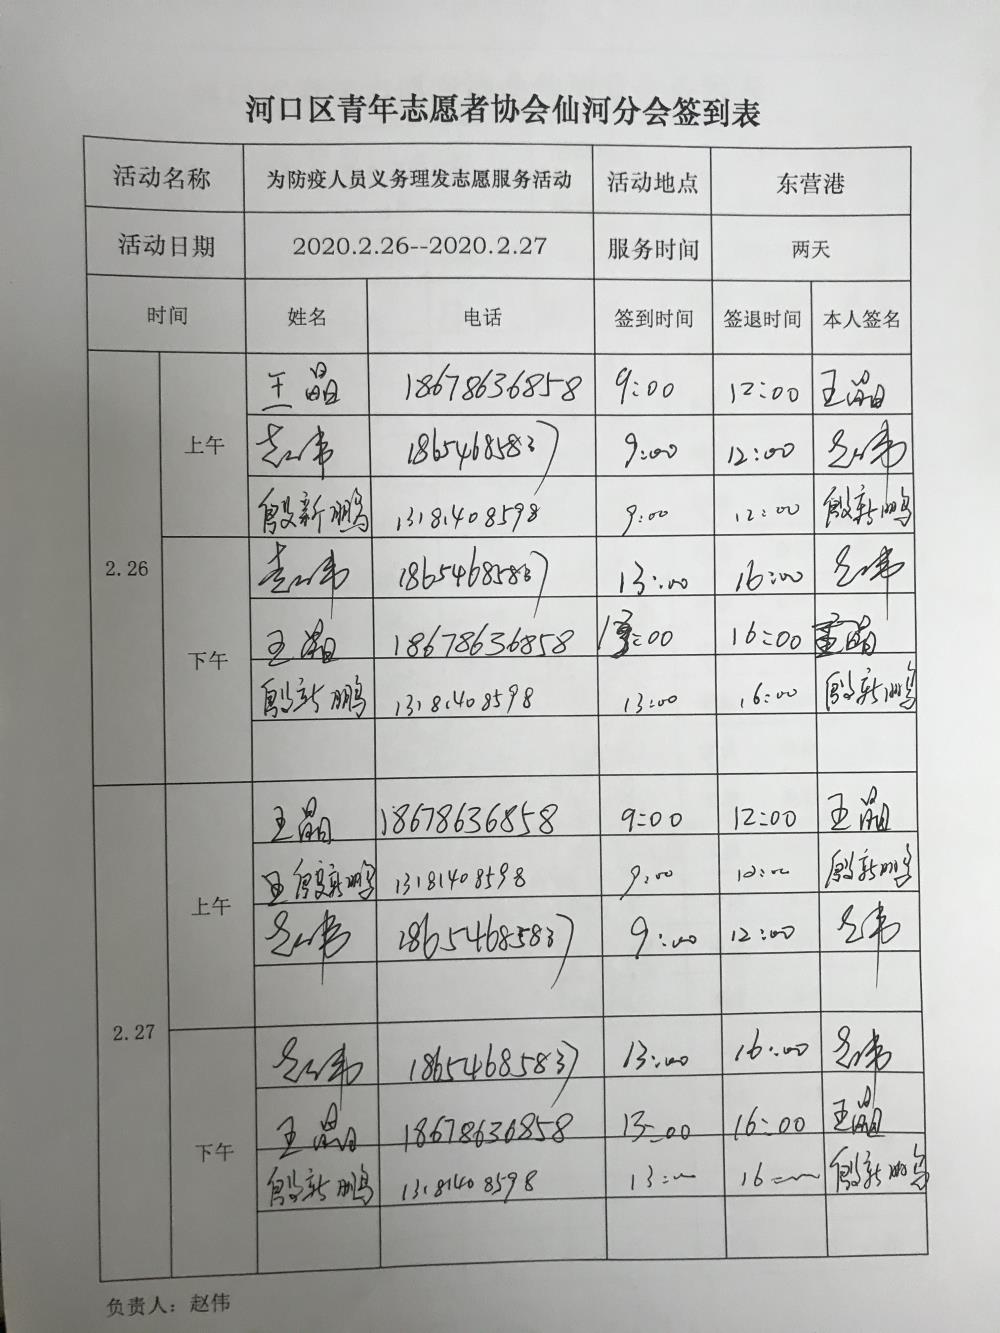 河口区青年志愿者协会仙河分会签到表
活动名称 为防疫人员义务理发志愿服务活动 活动地点 东营港
活动日期 2020.2.26--2020.2.27 服务时间 两天
时间 姓名 电话 签到时间 签退时间 本人签名
2.26
上午
王晶 18678636858 9:00 12:00 王晶
赵伟 18654685837 9:00 12:00 赵伟
殷新鹏 13181408598 9:00 12:00 殷新鹏
下午
赵伟 18654685837 13:00 16:00 赵伟
王晶 18678636858 13:00 16:00 王晶
殷新鹏 13181408598 13:00 16:00 殷新鹏
2.27
上午
王晶 18678636858 9:00 12:00 王晶
殷新鹏 13181408598 9:00 12:00 殷新鹏
赵伟 18654685837 9:00 12:00 赵伟
下午
赵伟 18654685837 13:00 16:00 赵伟
王晶 18678636858 13:00 16:00 王晶
殷新鹏 13181408598 13:00 16:00 殷新鹏
负责人：赵伟